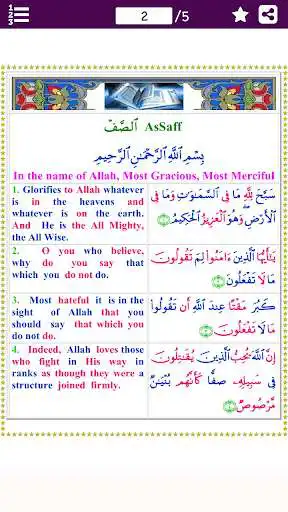 1
2
3
2 /5
الصَّفّ AsSaff
بِسْمِ اللَّهِ الرَّحْمَٰنِ الرَّحِيمِ
In the name of Allah, Most Gracious, Most Merciful
1. Glorifies to Allah whatever
is in the heavens and
whatever is on the earth.
And He is the All Mighty,
the All Wise.
سَبَّحَ لِلَّهِ مَا فِي السَّمَاوَاتِ وَمَا فِي
الْأَرْضِ وَهُوَ الْعَزِيزُ الْحَكِيمُ ۝
2. O you who believe,
why do you say that
which you do not do.
يَا أَيُّهَا الَّذِينَ ءَامَنُوا لِمَ تَقُولُونَ
مَا لَا تَفْعَلُونَ ۝
3. Most hateful it is in the
sight of Allah that you
should say that which you
do not do.
كَبُرَ مَقْتًا عِندَ اللَّهِ أَن تَقُولُوا
مَا لَا تَفْعَلُونَ ۝
4. Indeed, Allah loves those
who fight in His way in
ranks as though they were a
structure joined firmly.
إِنَّ اللَّهَ يُحِبُّ الَّذِينَ يُقَاتِلُونَ
فِي سَبِيلِهِ صَفًّا كَأَنَّهُم بُنْيَانٌ
مَّرْصُوصٌ ۝